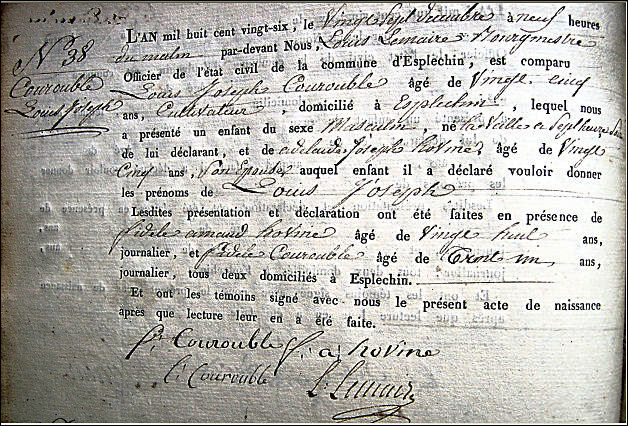 N.º 38
Courouble
Louis Joseph
L'AN mil huit cent vingt-six, le Vingt Sept decembre à neuf heures
du matin par-devant Nous, Louis Lemaire Bourgmestre
Officier de l'état civil de la commune d'Esplechin, est comparu
Louis Joseph Courouble âgé de Vingt cinq
ans, Cultivateur, domicilié à Esplechin, lequel nous
a présenté un enfant du sexe Masculin, né la Veille a Sept heures du Soir
de lui déclarant, et de adelaide Joseph hovine, âgé de Vingt
Cinq ans, Son Epouse, auquel enfant il a déclaré vouloir donner
les prénoms de Louis Joseph
Lesdites présentation et déclaration ont été faites en présence de
fidele amand hovine âgé de Vingt huit ans,
journalier, et fidele Courouble âgé de Trente un ans,
journalier, tous deux domiciliés à Esplechin.
Et ont les témoins signé avec nous le présent acte de naissance
après que lecture leur en a été faite.
f: Courouble f: a: hovine
l: Courouble L: Lemaire